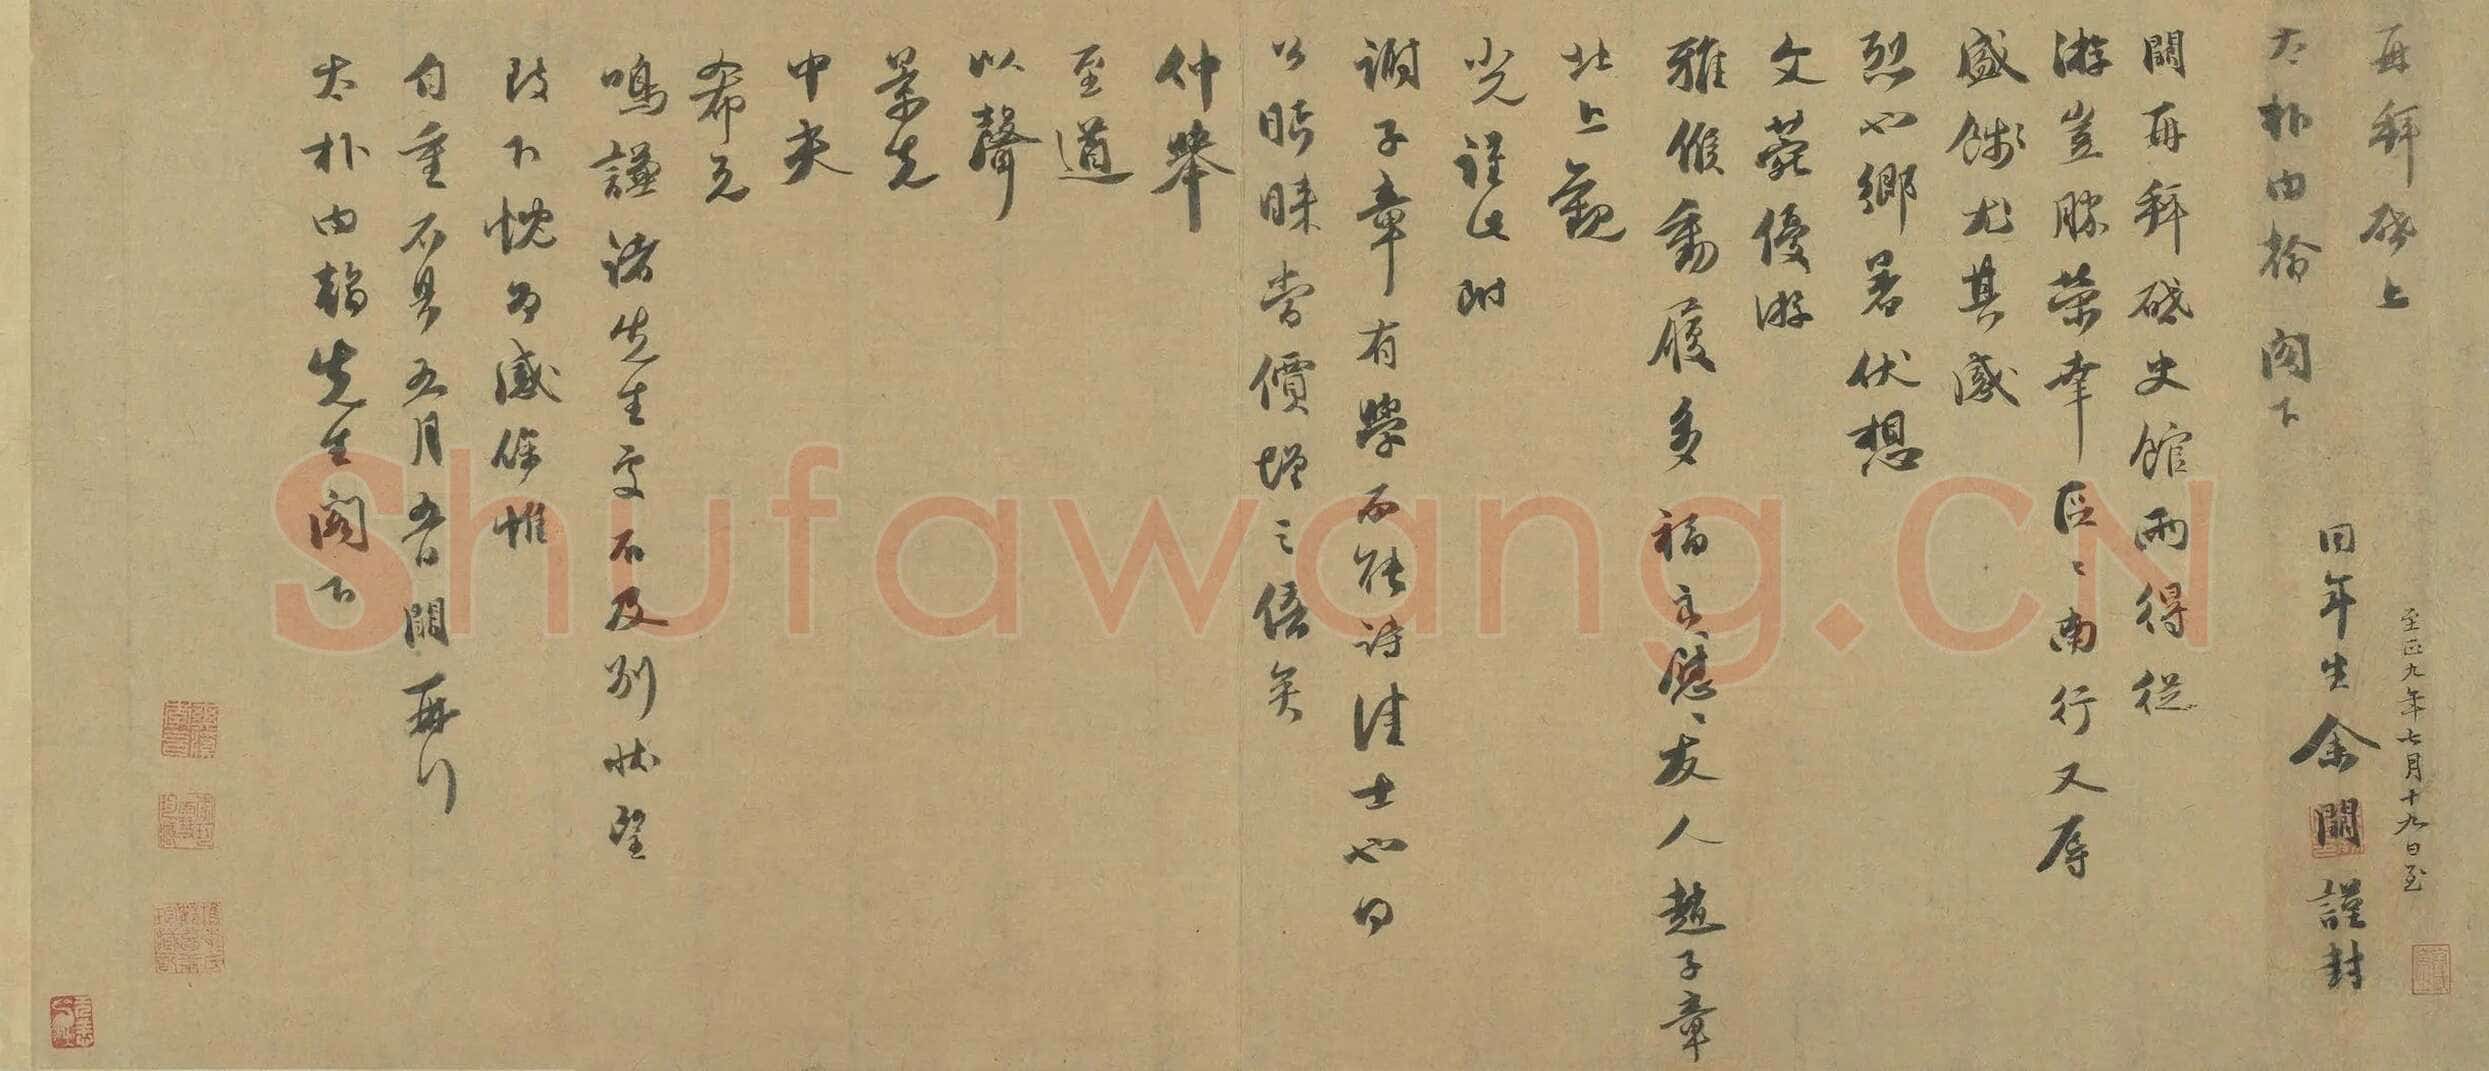 再拜啓上
太朴內翰閣下
至正九年七月十九日至
同年生余闕謹封
闕再拜啓史館兩得從
游豈勝榮幸區區南行又辱
盛餞尤其感
烈也鄉暑伏想
文苑優游
雅候動履多福為慰友人趙子章
北上覲
光謹此附
謝子章有學而能詩佳士也向
公眄睞當價增之倍矣
仲舉
至道
以聲
景先
中夫
希元
鳴謙諸先生處不及別狀望
致下忱為感餘惟
自重不具五月五日闕再行
太朴內翰先生閣下
Shufawang.CN